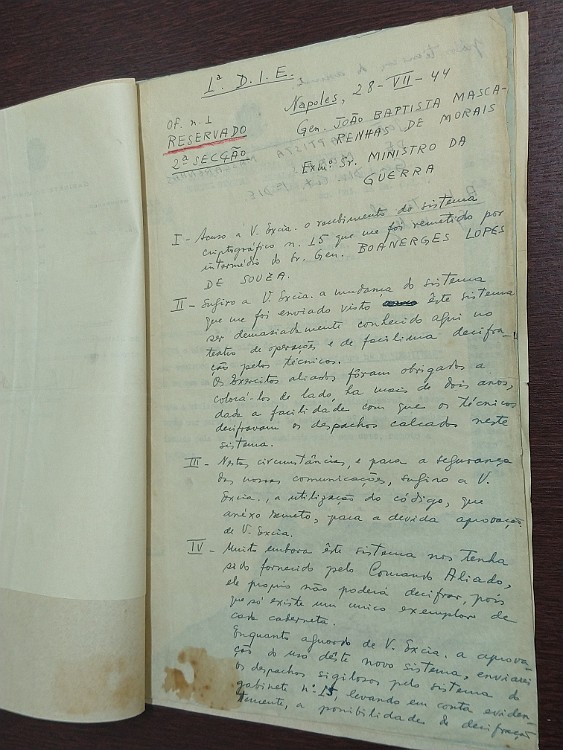 1ª D.I.E.
Of. n. 1
Napoles, 28-VII-44
RESERVADO
Gen. JOÃO BAPTISTA MASCA-
RENHAS DE MORAIS
2ª SECÇÃO
Exmº. Sr. MINISTRO DA
GUERRA
I - Acuso a V. Excia. o recebimento do sistema
criptográfico n. 15 que me foi remetido por
intermédio do Sr. Gen. BOANERGES LOPES
DE SOUZA.
II - Sugiro a V. Excia. a mudança do sistema
que me foi enviado visto êste sistema
ser demasiadamente conhecido aqui no
teatro de operações e de facilima decifra-
ção pelos técnicos.
Os Exércitos aliados fôram obrigados a
colocá-los de lado, ha mais de dois anos,
dada a facilidade com que os técnicos
decifravam os despachos calcados neste
sistema.
III - Nestas circunstância, e para a segurança
das nossas comunicações, sugiro a V.
Excia., a utilização do código, que
anéxo remeto, para a devida aprovação
de V. Excia.
IV - Muito embora êste sistema nos tenha
sido fornecido pelo Comando Aliado,
ele proprio não poderá decifrar, pois
que só existe um unico exemplar de
cada caderneta.
Enquanto aguardo de V. Excia. a aprova-
ção do uso dêste novo sistema, enviarei
os despachos sigilosos pelo sistema do
gabinete nº 15, levando em conta eviden-
temente, a possibilidades de decifração